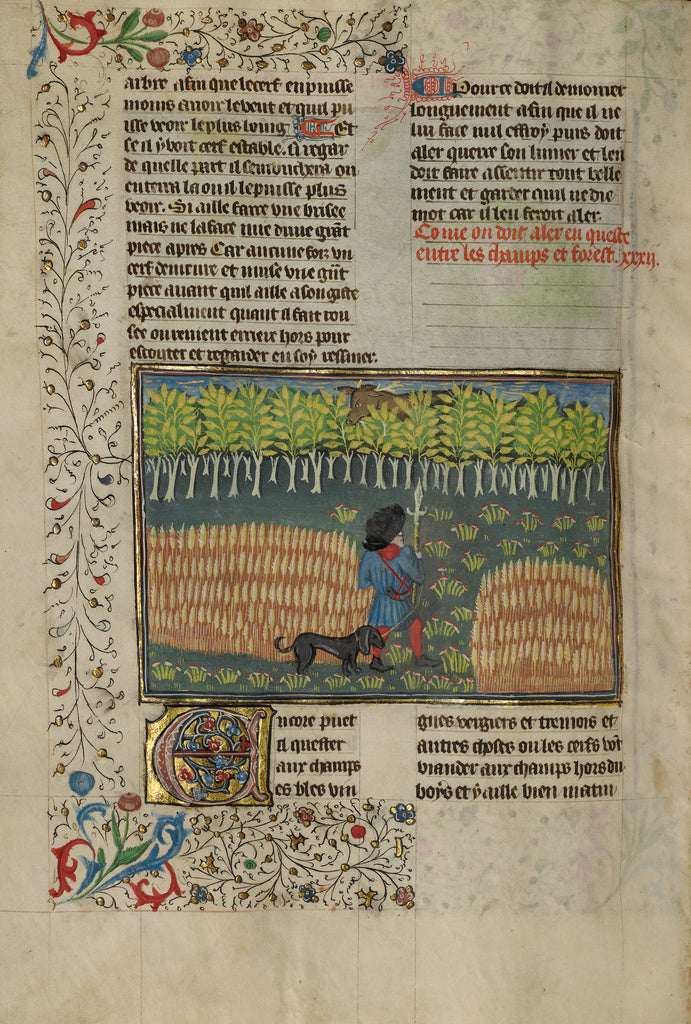 arbre afin que le cerf en puisse
moins avoir le vent et quil pu
isse veoir le plus loing Et
se il y voit cerf estable. si regar
de quelle part il sembuchera ou
enterra la ou il le puisse plus
veoir. Si aille faire une brisee
mais ne la face mie dune grant
piece apres Car aucune foiz un
cerf demeure et muse une grant
piece avant quil aille a son giste
especialment quant il fait rou
see ou revient arriere hors pour
escouter et regarder en soy ressuier.
Pour ce doit il demourer
longuement afin que il ne
lui face nul effroy puis doit
aler querre son limier et len
doit faire assentir tout belle
ment et garder quil ne die
mot car il len feroit aler.
Come on doit aler en queste
entre les champs et forest. xxxii.
Encore puet
il quester
aux champs
es bles vin
gnes vergiers et tremois et
autres choses ou les cerfs vont
viander aux champs hors du
boys et y aille bien matin